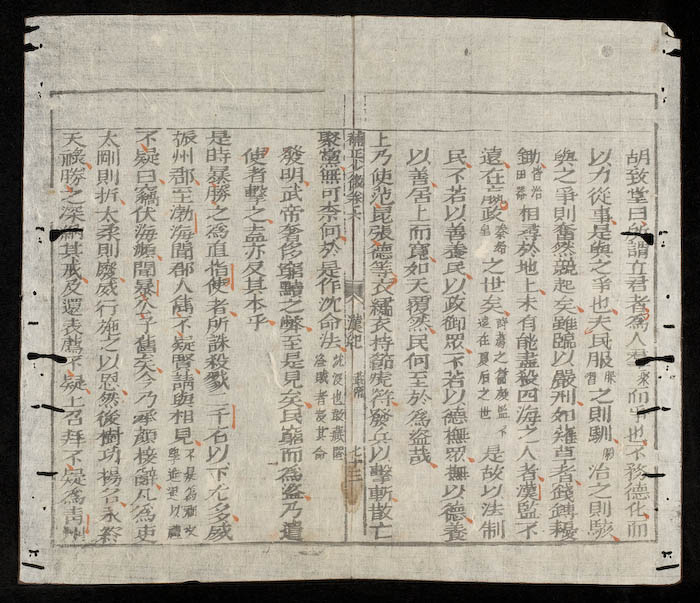 胡致堂曰所謂立君者爲人羣聚而爭也不務德化而
以力從事是與之爭也夫民服習之則馴治之則駭
與之爭則奮然競起矣雖臨以嚴刑如薙草者錢鎛耰
鋤相尋於地上未有能盡殺四海之人者漢監不
遠在嬴政之世矣是故以法制
民不若以善養民以政御眾不若以德撫眾撫以德養
以善居上而寬如天覆然民何至於爲盜哉
上乃使范昆張德等衣繡衣持節虎符發兵以擊斬散亡
聚黨無可柰何於是作沈命法
發明武帝奢侈窮黷之弊至是見矣民窮而爲盜乃遣
使者擊之盍亦反其本乎
是時暴勝之爲直指使者所誅殺戮二千石以下尤多威
振州郡至渤海聞郡人雋不疑賢請與相見
不疑曰竊伏海瀕聞暴公子舊矣今乃承顏接辭凡爲吏
太剛則折太柔則廢威行施之以恩然後樹功揚名永終
天祿勝之深納其戒及還表薦不疑上召拜不疑爲靑州